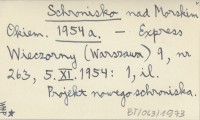 Schronisko nad Morskim
Okiem. 1954 a. — Express
Wieczorny (Warszawa) 9, nr
263, 5. XI. 1954: 1, il.
Projekt nowego schroniska.
BT/063/1973